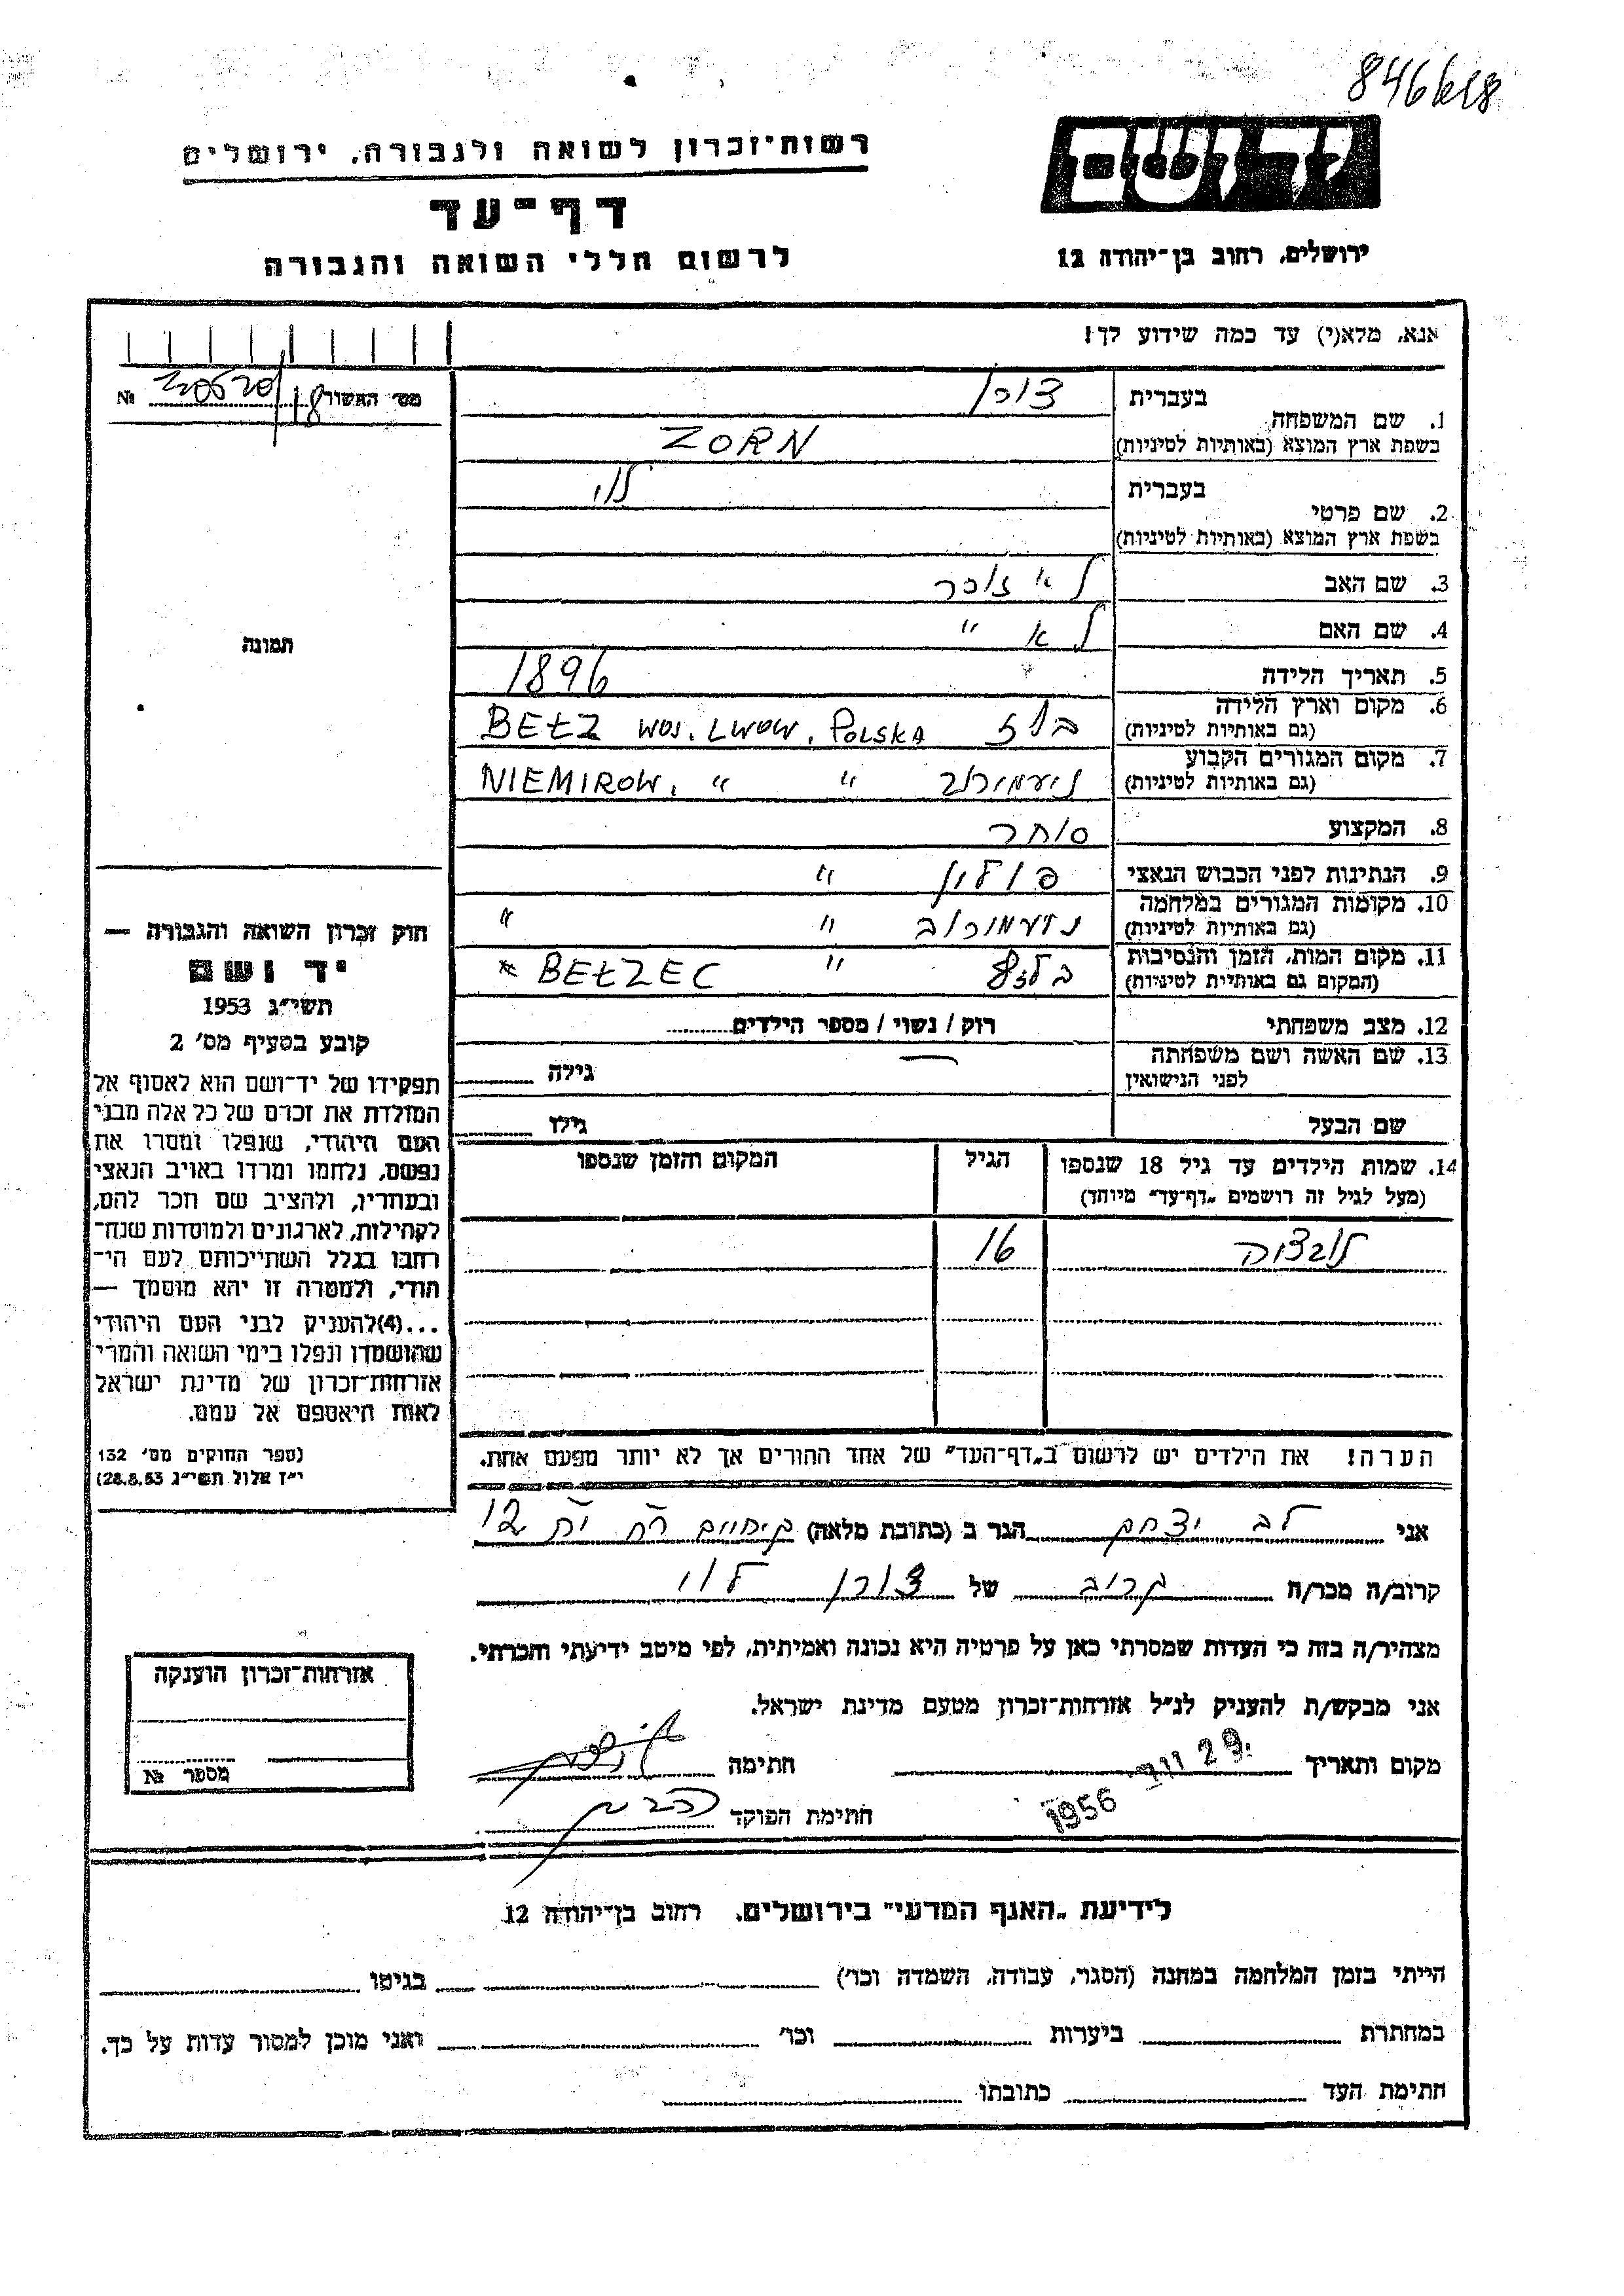 רשות־זכרון לשואה ולגבורה, ירושלים
דף־עד
לרשום חללי השואה והגבורה
יד ושם
ירושלים, רחוב בן־יהודה 12
אנא, מלא(י) עד כמה שידוע לך!
מס׳ האשור 30520/18 №
1. שם המשפחה
בעברית צורן
בשפת ארץ המוצא (באותיות לטיניות) ZORN
2. שם פרטי
בעברית לוי
בשפת ארץ המוצא (באותיות לטיניות)
3. שם האב לא זוכר
4. שם האם לא "
5. תאריך הלידה 1896
6. מקום וארץ הלידה
(גם באותיות לטיניות) בלז BEŁZ WOJ. LWOW. POLSKA
7. מקום המגורים הקבוע
(גם באותיות לטיניות) ניעמירוב NIEMIROW. " "
8. המקצוע סוחר
9. הנתינות לפני הכבוש הנאצי פולין "
10. מקומות המגורים במלחמה
(גם באותיות לטיניות) ניעמירוב " "
11. מקום המות, הזמן והנסיבות
(המקום גם באותיות לטיניות) בלזץ " BEŁZEC *
12. מצב משפחתי רוק / נשוי / מספר הילדים
13. שם האשה ושם משפחתה
לפני הנישואין גילה
שם הבעל גילו
14. שמות הילדים עד גיל 18 שנספו
(מעל לגיל זה רושמים „דף־עד״ מיוחד)
הגיל
המקום והזמן שנספו
16
הערה! את הילדים יש לרשום ב„דף־העד״ של אחד ההורים אך לא יותר מפעם אחת.
תמונה
חוק זכרון השואה והגבורה —
יד ושם
תשי״ג 1953
קובע בסעיף מס׳ 2
תפקידו של יד־ושם הוא לאסוף אל
המולדת את זכרם של כל אלה מבני
העם היהודי, שנפלו ומסרו את
נפשם, נלחמו ומרדו באויב הנאצי
ובעוזריו, ולהציב שם וזכר להם,
לקהילות, לארגונים ולמוסדות שנח־
רבו בגלל השתייכותם לעם הי־
הודי, ולמטרה זו יהא מוסמך —
...(4)להעניק לבני העם היהודי
שהושמדו ונפלו בימי השואה והמרי
אזרחות־זכרון של מדינת ישראל
לאות היאספם אל עמם.
(ספר החוקים מס׳ 132
י״ז אלול תשי״ג 28.8.53)
אני לב יצחק הגר ב (כתובת מלאה) 12
קרוב/ה מכר/ה קרוב של צורן לוי
מצהיר/ה בזה כי העדות שמסרתי כאן על פרטיה היא נכונה ואמיתית, לפי מיטב ידיעתי והכרתי.
אני מבקש/ת להעניק לנ״ל אזרחות־זכרון מטעם מדינת ישראל.
מקום ותאריך 29 1956 חתימה
חתימת הפוקד
אזרחות־זכרון הוענקה
מספר №
לידיעת „האגף המדעי״ בירושלים, רחוב בן־יהודה 12
הייתי בזמן המלחמה במחנה (הסגר, עבודה, השמדה וכו׳) בגיטו
במחתרת ביערות וכו׳ ואני מוכן למסור עדות על כך.
חתימת העד כתובתו